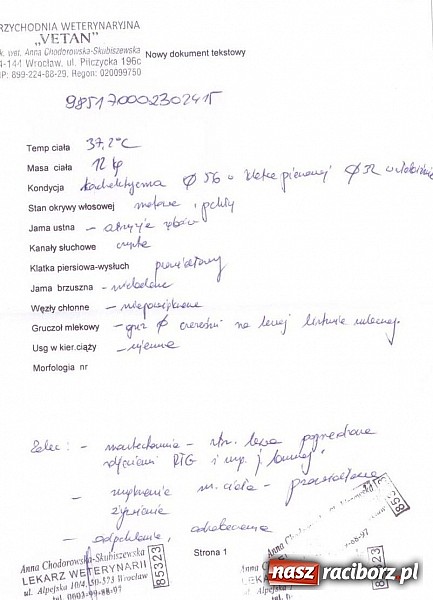 RZYCHODNIA WETERYNARYJNA
„VETAN”
k. wet. Anna Chodorowska-Skubiszewska
4-144 Wrocław, ul. Pilczycka 196c
IP: 899-224-88-29, Regon: 020099750
Nowy dokument tekstowy
985170002302415
Temp ciała 37,2°C
Masa ciała 12 kg
Kondycja kachektyczna Ø 56 w klatce piersiowej Ø 32 w
Stan okrywy włosowej matowa, pchły
Jama ustna -
Kanały słuchowe czyste
Klatka piersiowa-wysłuch prawidłowy
Jama brzuszna -
Węzły chłonne - niepowiększone
Gruczoł mlekowy - guz Ø czereśni na lewej listwie mlecznej.
Usg w kier.ciąży - ujemne
Morfologia nr
Zalec: - mastectomia - str. lewa poprzedzona
zdjęciami RTG i usg j. brzusznej
- wyrównanie m. ciała - prawidłowe
żywienie
- odpchlenie, odrobaczenie
Strona 1
Anna Chodorowska-Skubiszewska
LEKARZ WETERYNARII
ul. Alpejska 10/4, 50-523 Wrocław
tel. 0603-99-88-07
85323
nasz raciborz.pl